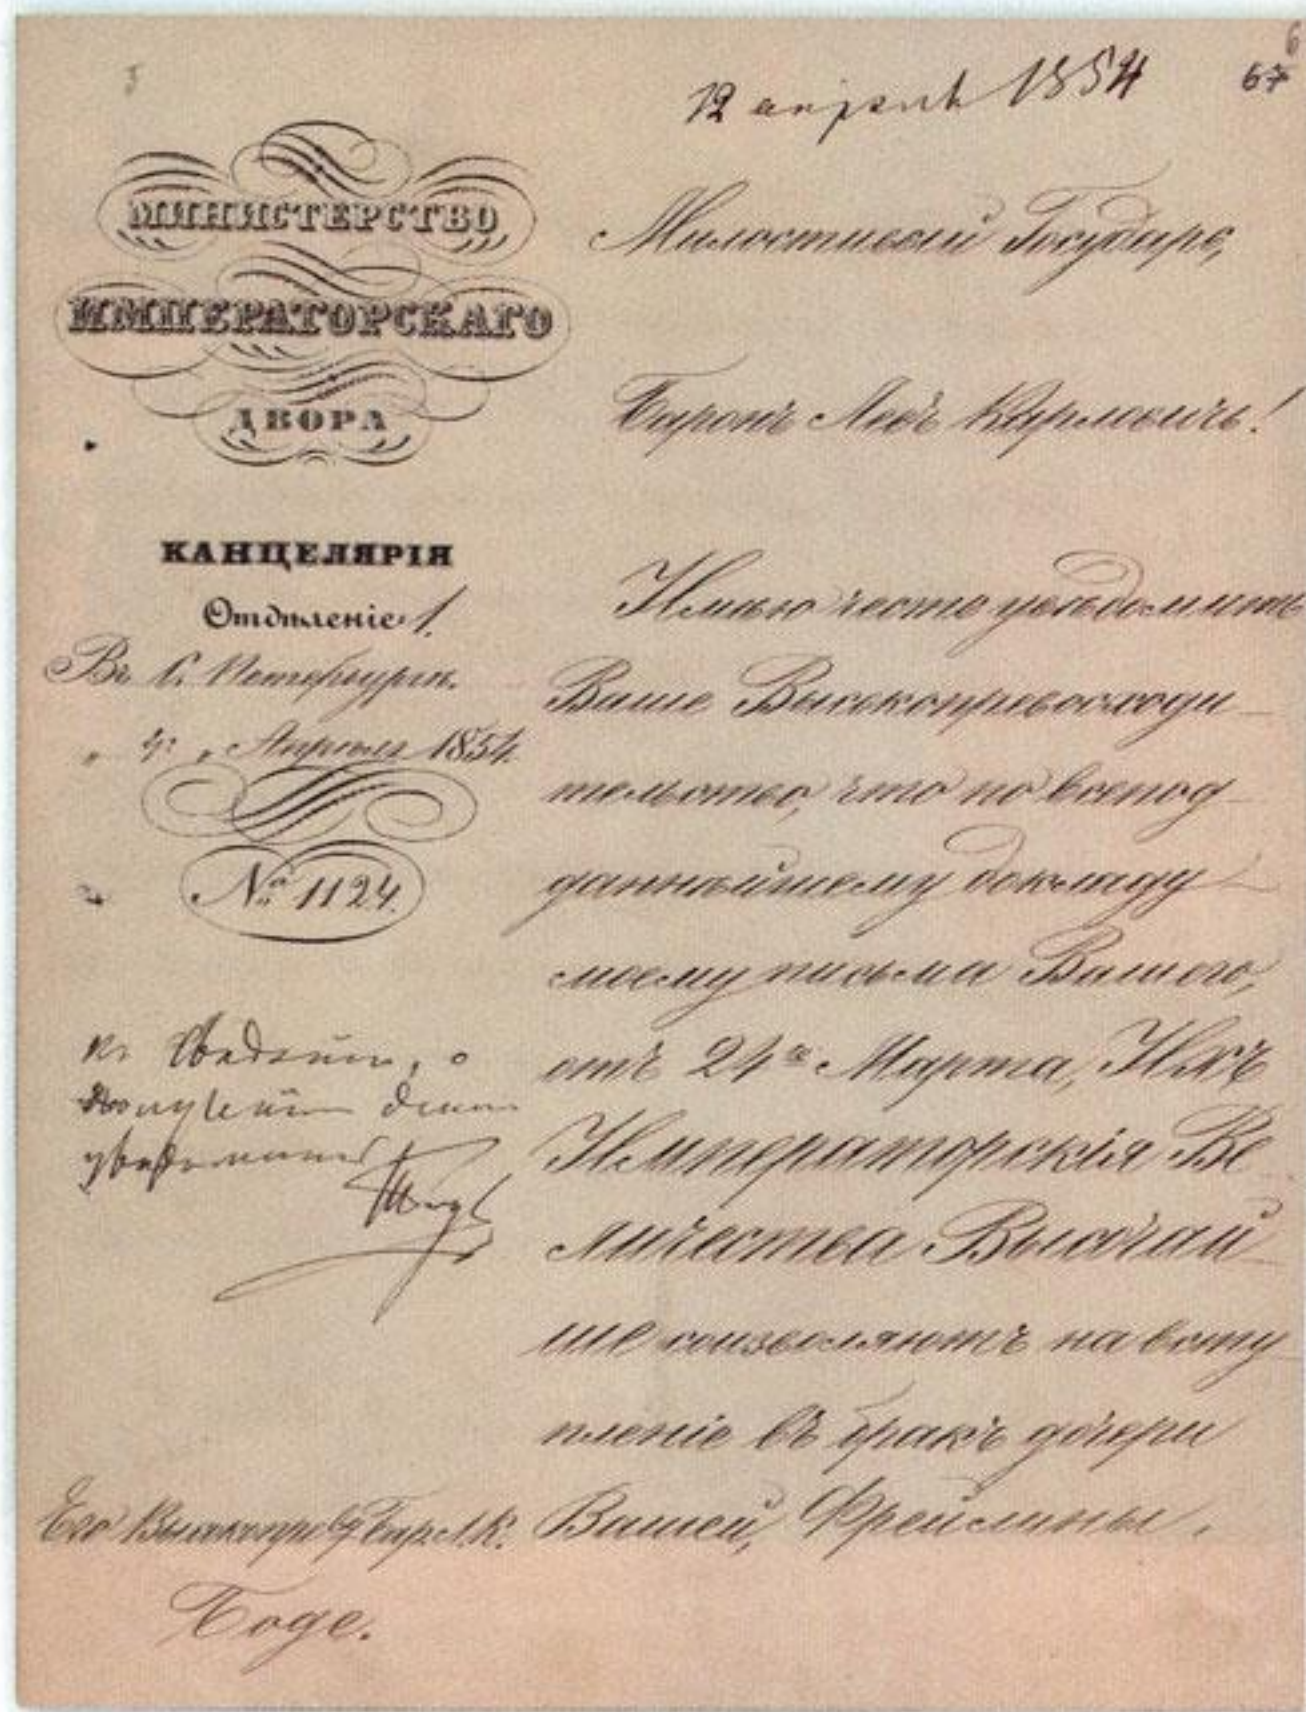 6
67
12 апрель 1854
МИНИСТЕРСТВО
ИМПЕРАТОРСКАГО
ДВОРА
КАНЦЕЛЯРІЯ
Отдѣленіе 1.
Въ С. Петербургѣ.
Апрѣля 1854.
№ 1124.
Его Высокопр Бар. Л. К.
Боде.
Милостивый Государь,
Баронъ Левъ Карловичь!
Имѣю честь увѣдомить
Ваше Высокопревосходи-
тельство, что по всепод-
даннѣйшему докладу
моему письма Вашего,
отъ 24го Марта, Ихъ
Императорскія Ве-
личества Высочай-
ше соизволяютъ на всту-
пленіе въ бракъ дочери
Вашей, Фрейлины,